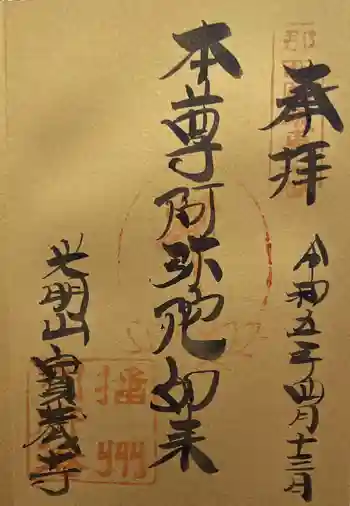 奉拝
令和五年四月十三日
本尊阿弥陀如来
光明山寳養寺
播州